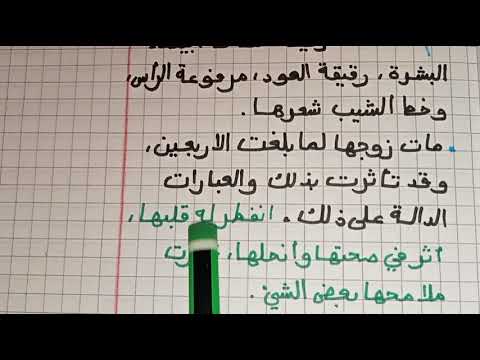 البشرة، رقيقة العود، مرفوعة الرأس،
وخط الشيب شعرها.
مات زوجها لما بلغت الأربعين،
وقد تأثرت بذلك والعبارات
الدالة على ذلك. انفطر له قلبها،
أثر في صحتها وأنحلها،
ملامحها بعض الشيئ.